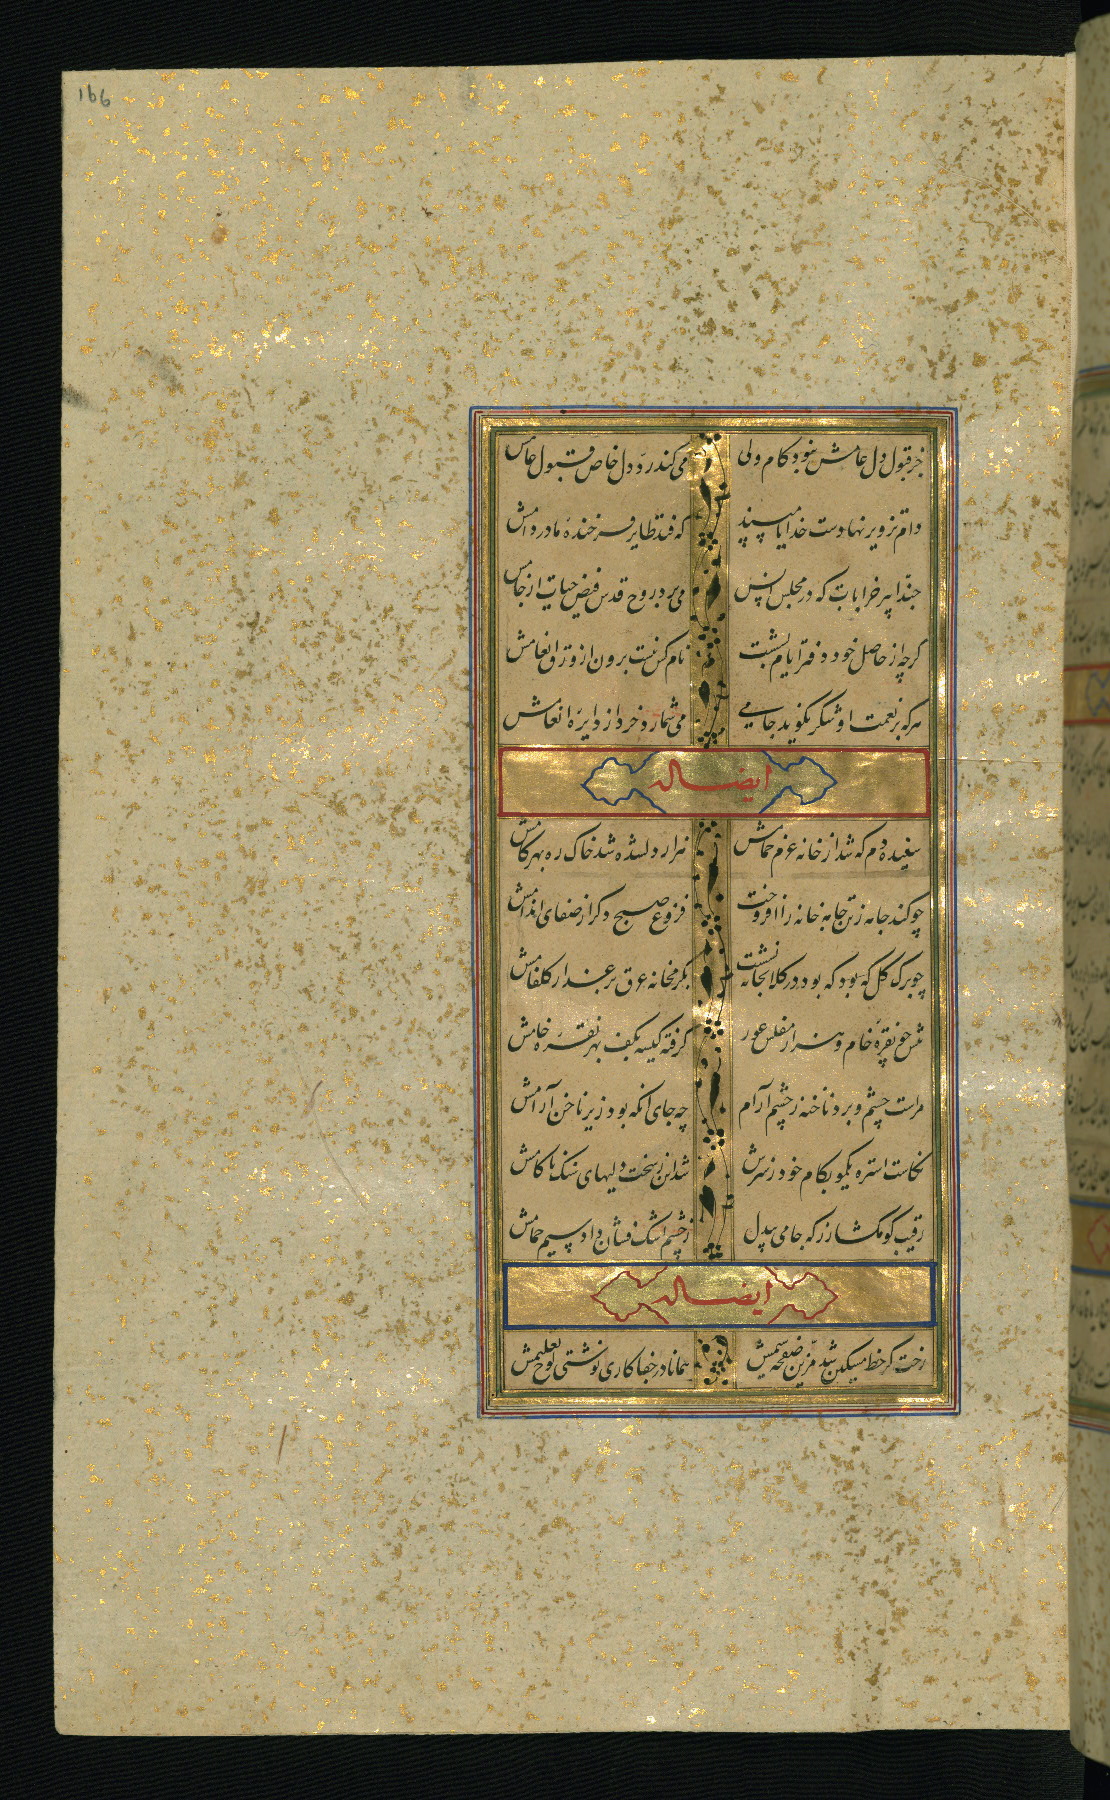 166
جز قبول دل عامش نبود کام ولی
می کند رد دل خاص قبول عامش
دام تزویر نهادست خدایا مپسند
که فتد طایر فرخنده ما در دامش
حبذا پیر خرابات که در مجلس انس
می برد روح قدس فیض حیات از جامش
کرچه از حاصل خود دفتر ایام بشست
نام کس نیست برون از ورق انعامش
هر که بر نعمت او شکر نکوید جامی
می شمارد خرد از دایره انعامش
ایضا له
سفیده دم که شد از خانه عزم حمامش
هزار دلشده شد خاک ره بهر کامش
چو کند جامه ز تن جامه خانه را افروخت
فروغ صبح دکر از صفای اندامش
چو برک کل که بود که بود در کلاب خانه نشست
بکرمخانه عرق بر عذار کلفامش
تنش چو نقره خام و هزار مفلس عور
کرفته کیسه بکف بهر نقره خامش
مراست چشم و برد ناخنه ز چشم آرام
چه جای آنکه بود زیر ناخن آرامش
نخاست استره یکمو بکام خود ز سرش
شد از سختدلیهای سنک پا کامش
رقیب کو مکشا زر که جامی بیدل
ز چشم اشک فشان داد سیم حمامش
ایضا له
رخت کز خط مشکین شد مزین صفحه سیمش
همانا در جفا کاری نوشتی لوح تعلیمش